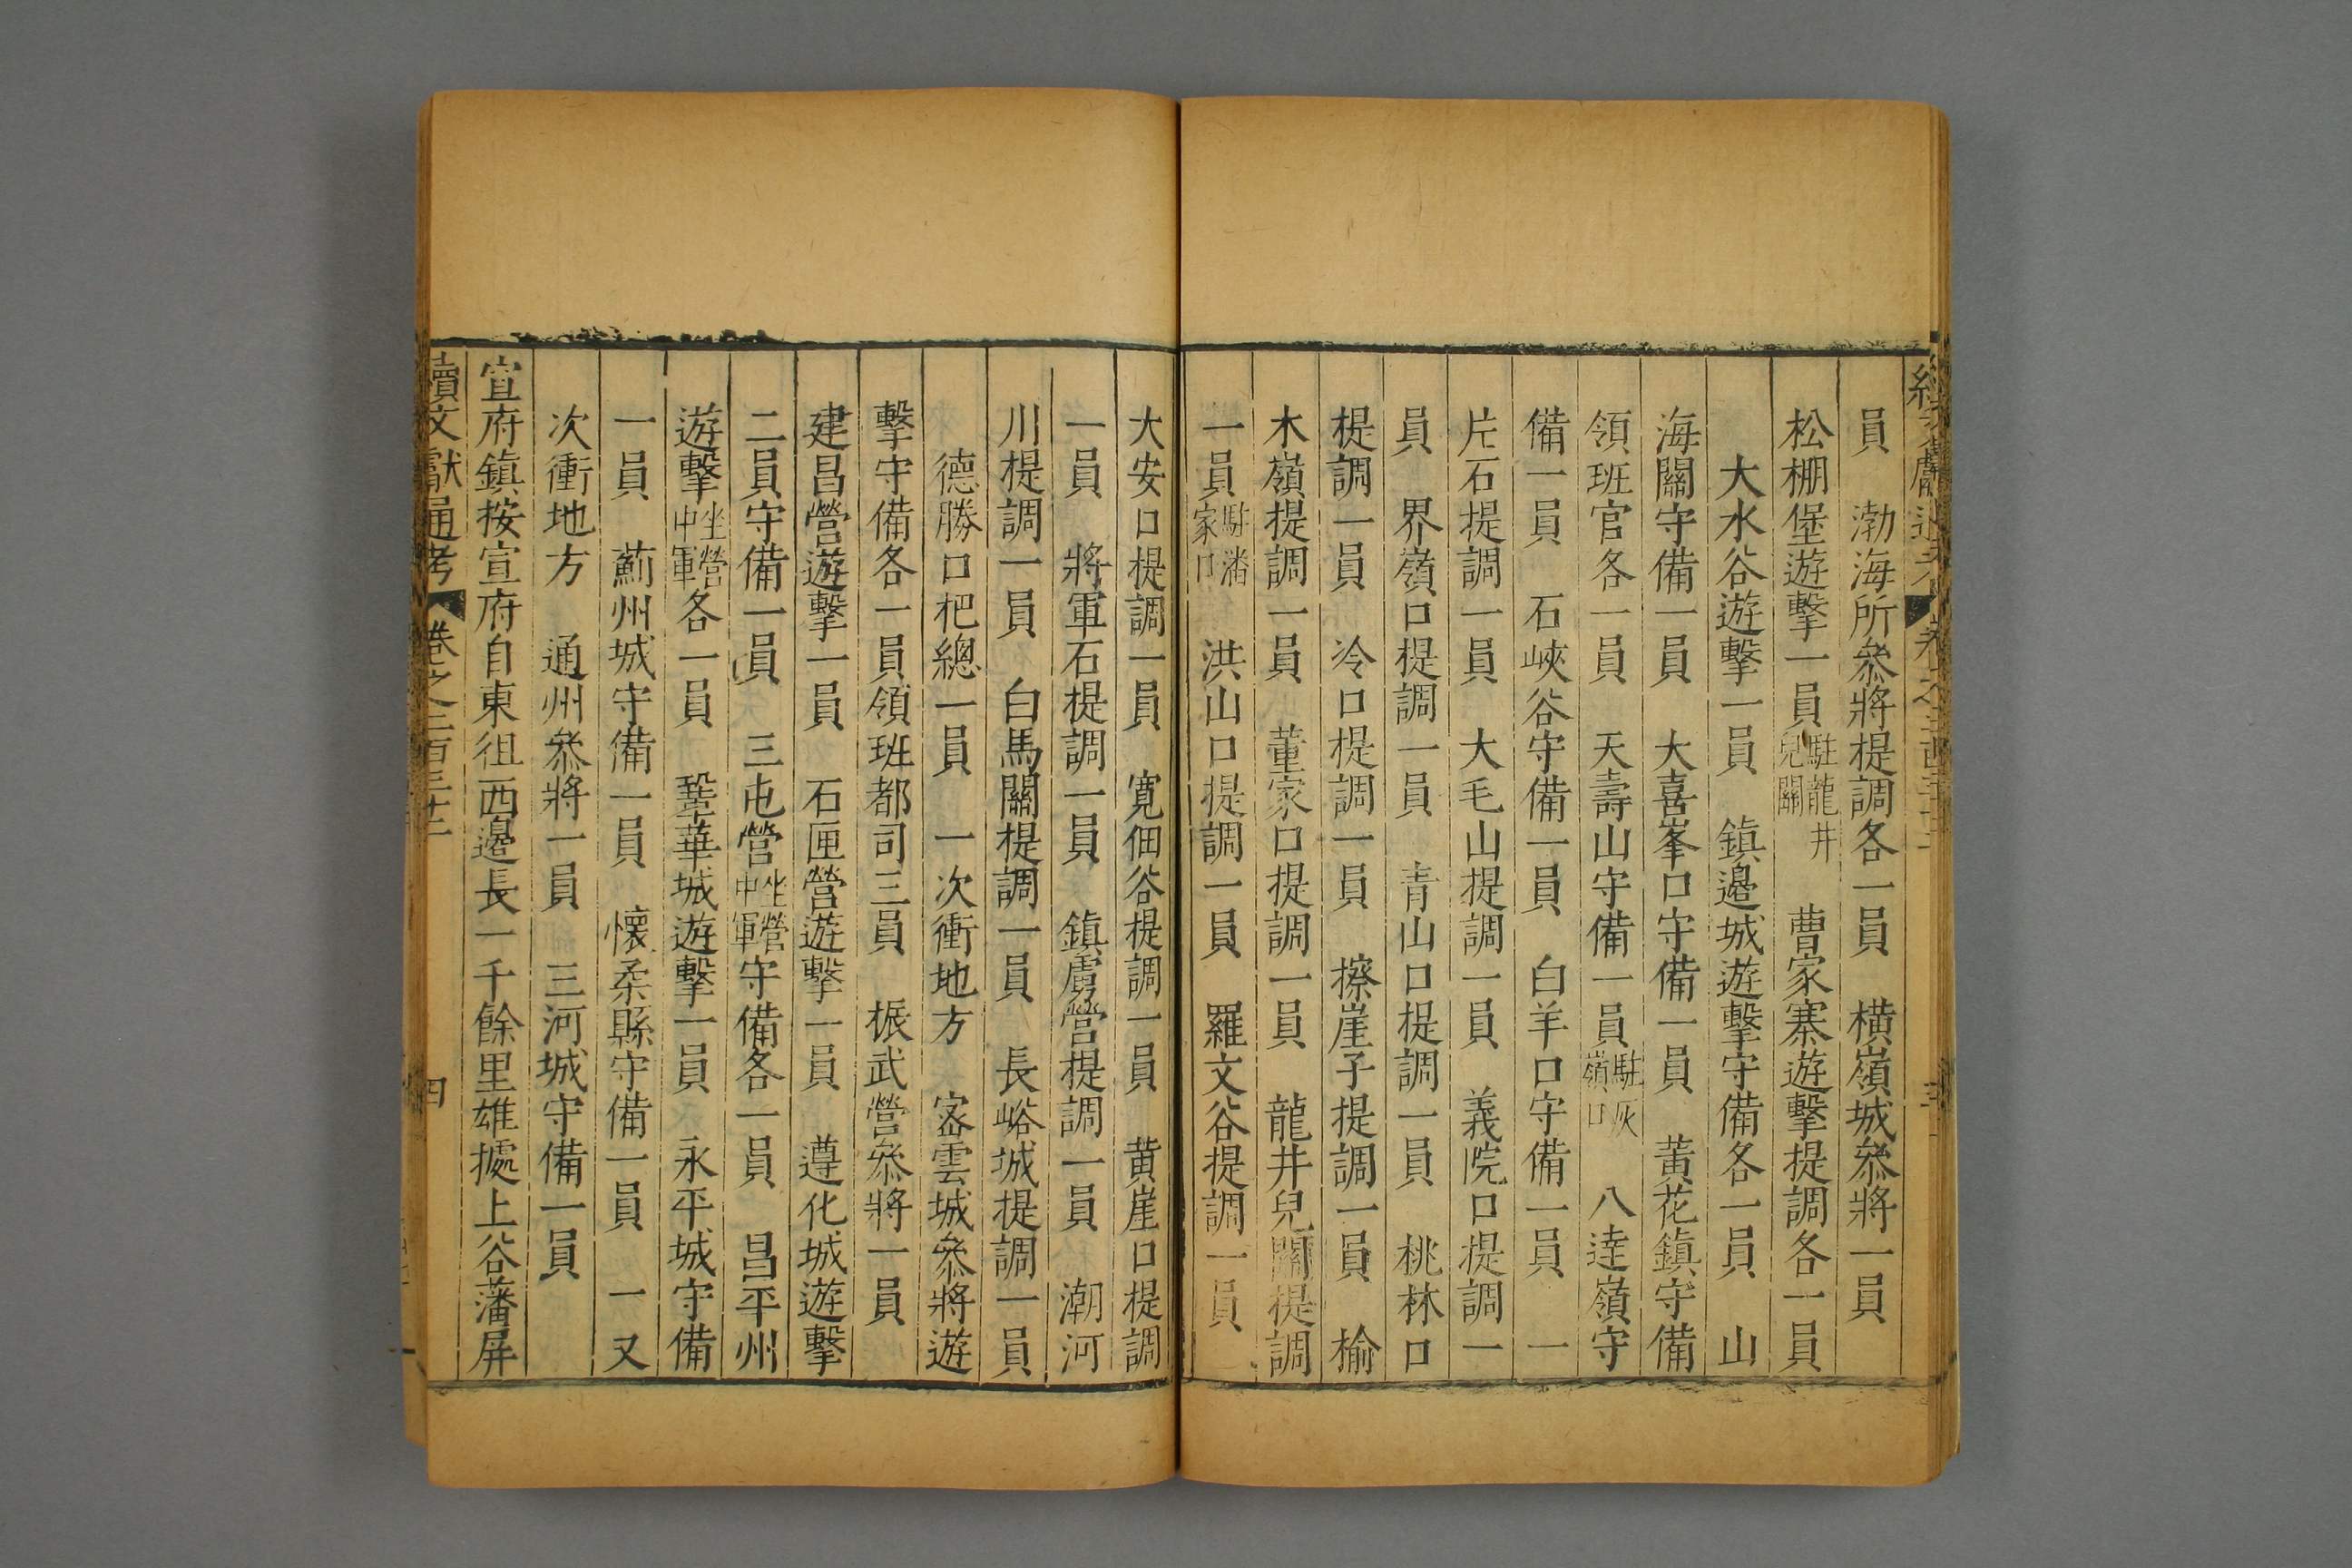 員　渤海所叅將提調各一員　橫嶺城叅將一員
松棚堡遊擊一員駐龍井兒關　曹家寨遊擊提調各一員
大水谷遊擊一員　鎮邊城遊擊守備各一員　山
海關守備一員　大喜峯口守備一員　黃花鎮守備
領班官各一員　天壽山守備一員駐灰嶺口　八達嶺守
備一員　石峽谷守備一員　白羊口守備一員　一
片石提調一員　大毛山提調一員　義院口提調一
員　界嶺口提調一員　青山口提調一員　桃林口
提調一員　冷口提調一員　擦崖子提調一員　榆
木嶺提調一員　董家口提調一員　龍井兒關提調
一員駐潘家口　洪山口提調一員　羅文谷提調一員
大安口提調一員　寛佃谷提調一員　黄崖口提調
一員　將軍石提調一員　鎮虜營提調一員　潮河
川提調一員　白馬關提調一員　長峪城提調一員
德勝口杷總一員　一次衝地方　宻雲城叅將遊
擊守備各一員領班都司三員　振武營叅將一員
建昌營遊擊一員　石匣營遊擊一員　遵化城遊擊
二員守備一員　三屯營坐營中軍守備各一員　昌平州
遊擊坐營中軍各一員　鞏華城遊擊一員　永平城守備
一員　薊州城守備一員　懷柔縣守備一員　一又
次衝地方　通州叅將一員　三河城守備一員
宣府鎮按宣府自東徂西邊長一千餘里雄據上谷藩屏
續文獻通考　卷之二百三十二　四